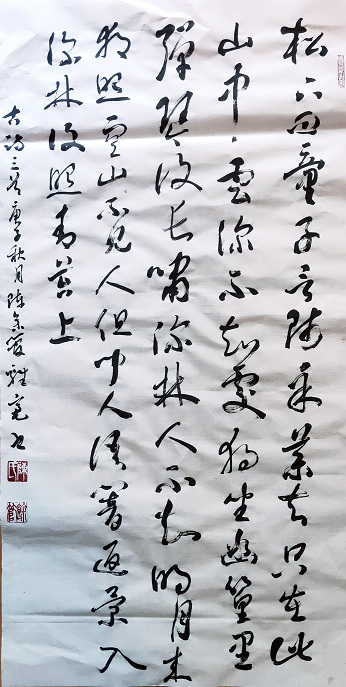 松下问童子言师采药去只在此
山中雲深不知處独坐幽篁里
彈琴復长嘯深林人不知明月来
相照空山不见人但闻人语響返景入
深林復照青苔上
古诗三首庚子秋月陈